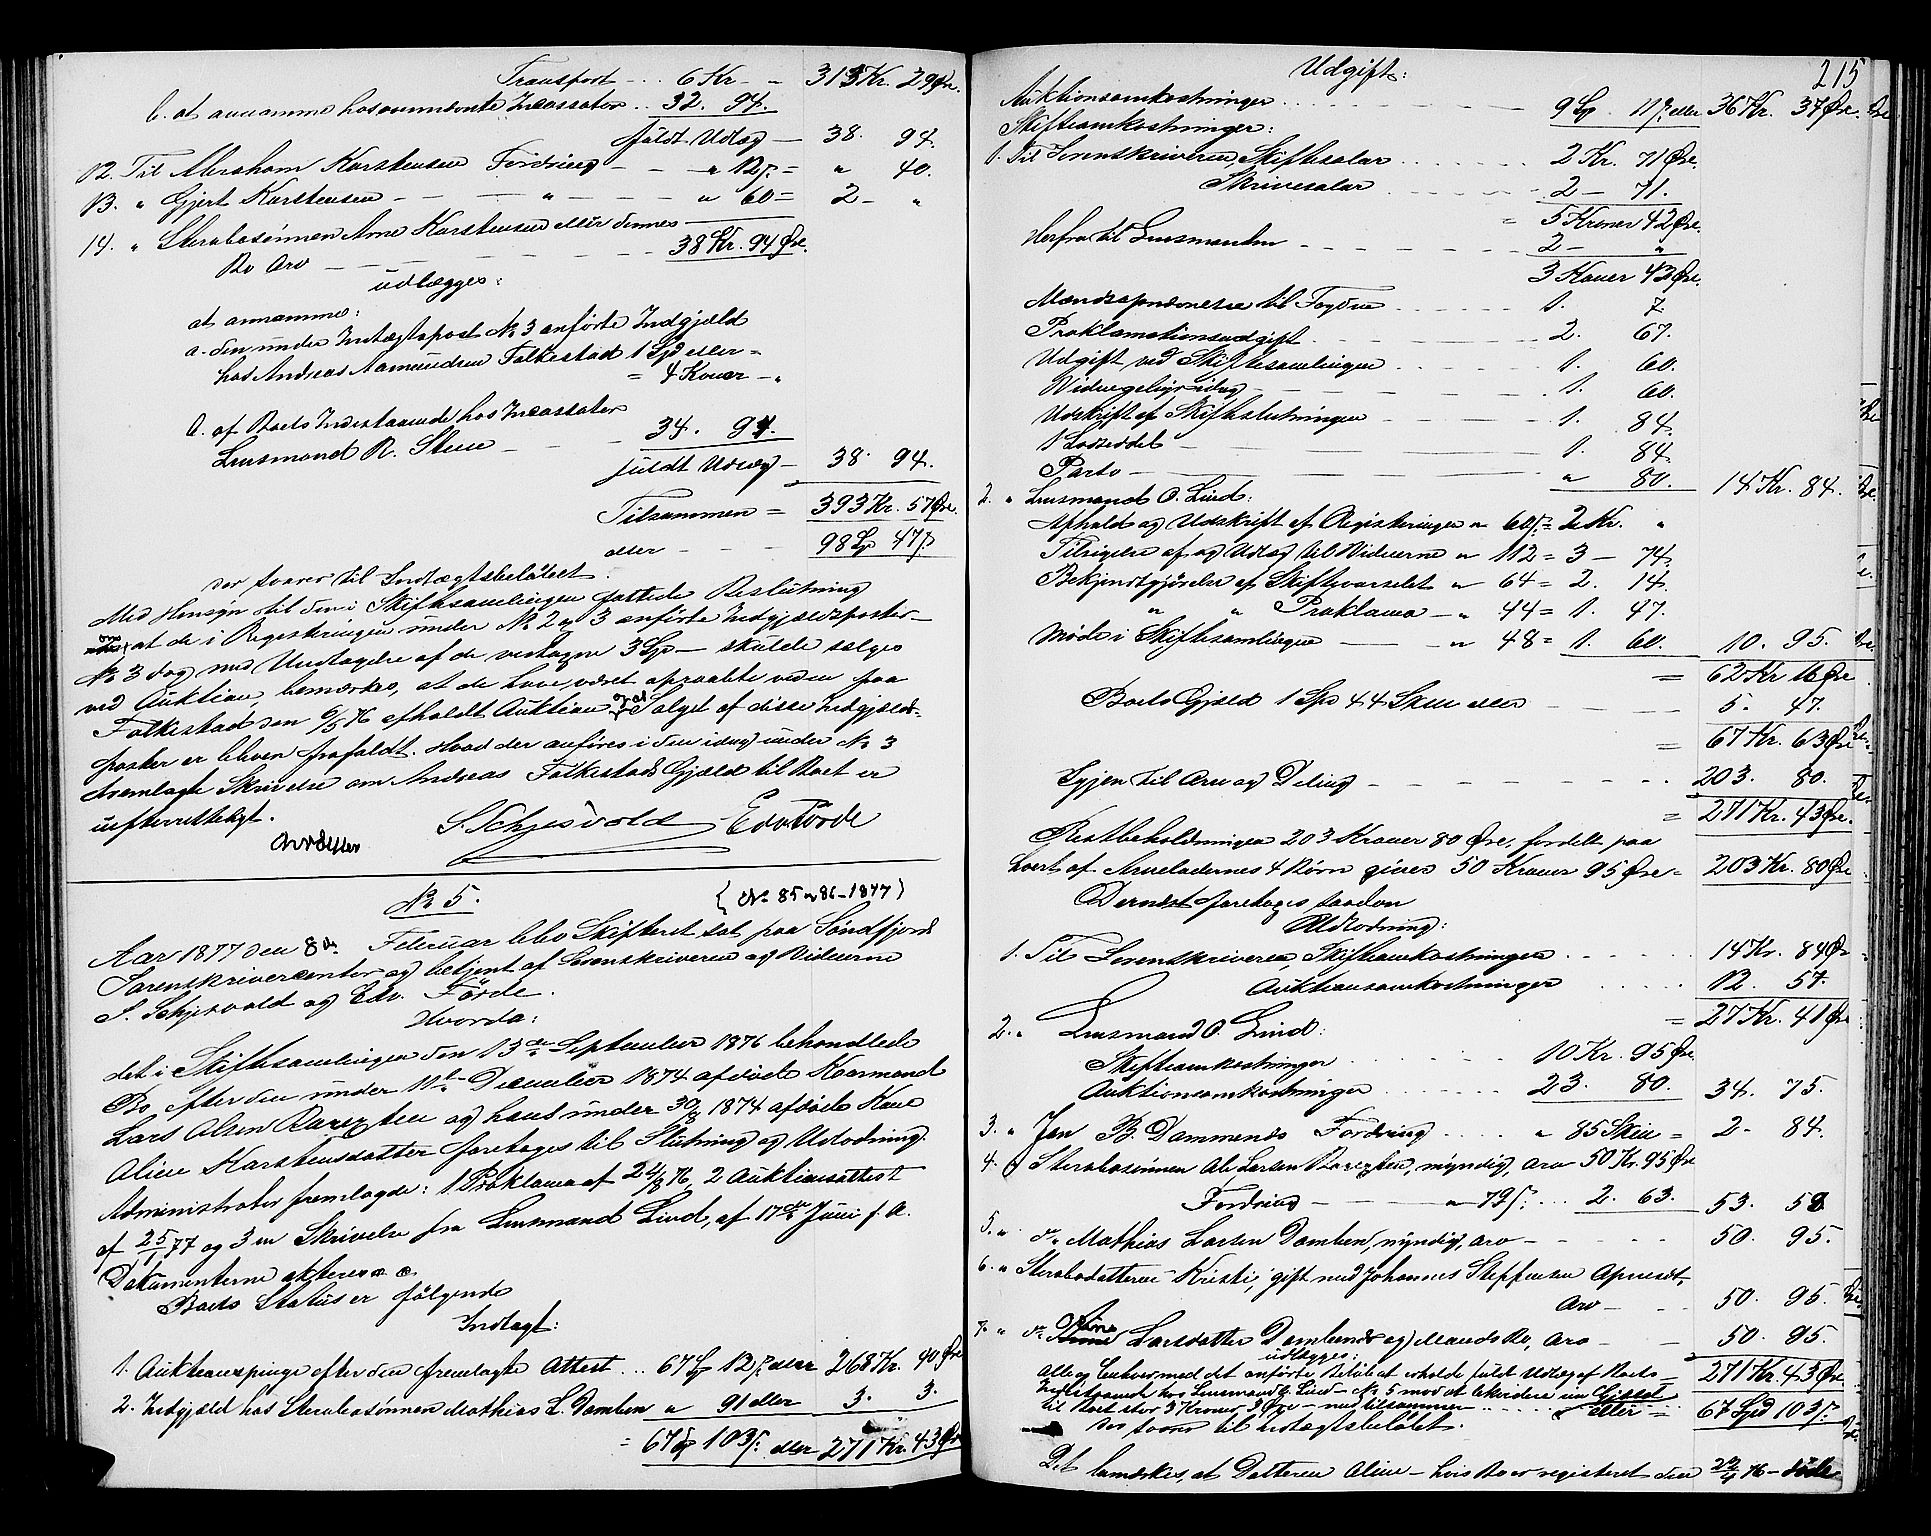 Transport - .. 6 Kr - " 313 Kr. 29 Øre.
b. at annamme hos ovennævnte Incassator .. 32. 94.
fuldt Udlæg - 38. 94.
12. Til Abraham Karstensen Fordring - - " 12 s. = " 40.
13. " Gjert Karstensen - - - " - - - " 60 = 2 - "
14. " Sterbosønnen Arne Karstensen eller dennes
Bo Arv - - - - - 38 Kr. 94 Øre.
udlægges:
at annamme:
a. den under Indtægtspost No 3 anførte Indgjæld
hos Andreas Aamundsen Falkestad 1 Spd eller =
= 4 Kroner - "
b. af Boets Indestaaende hos Incassator
Lensmand R. Steen - - 34. 94.
fuldt Udlæg - 38. 94.
Tilsammen = 393 Kr. 57 Øre.
eller - - - 98 Sp 47 s
der svarer til Indtægtsbeløbet.
Med Hensyn til den i Skiftesamlingen fattede Beslutning
om at de i Registreringen under No 2 og 3 anførte Indgjældsposter -
No 3 dog med Undtagelse af de vedtagne 3 Sp - skulde sælges
ved Auktion, bemærkes, at de have været opraabte ved en paa
Falkestad den 6/5 76 afholdt Auktion og at Salget af disse Indgjælds-
poster er bleven frafaldt. Hvad der anføres i den idag under No 3
fremlagte Skrivelse om Andreas Falkestads Gjæld til Boet er
uefterretteligt.
S. Schjesvold Edv Førde
No 5. { No 85 og 86 - 1877 }
Aar 1877 den 8de Februar blev Skifteret sat paa Søndfjords
Sorenskrivercontor og betjent af Sorenskriveren og Vidnerne
S. Schjesvold og Edv. Førde.
Hvorda:
det i Skiftesamlingen den 13de September 1876 behandlede
Bo efter den under 11te December 1874 afdøde Kaarmand
Lars Olsen og hans under 30/8 1874 afdøde Kone
Aline Karstensdatter foretoges til Slutning og Udlodning.
Administrator fremlagde: 1 Proklama af 24/8 76, 2 Auktionsattest
af 25/1 77 og 3 en Skrivelse fra Lensmand Lind, af 17de Juni f. A.
Dokumenterne akteres
Boets Status er følgende
Indtægt:
1. Auktionspenge efter den fremlagte Attest .. 67 Sp 12 s. eller 268 Kr. 40 Øre
2. Indgjæld hos Sterbosønnen Mathias L. Domben " 91 eller 3. 3.
= 67 Sp 103 s. eller 271 Kr. 43 Øre
215
Udgift:
Auktionsomkostninger . . . . 9 Sp. 11 s. eller 36 Kr. 37 Øre.
Skifteomkostninger:
1. Til Sorenskriveren Skiftesalær . . . . 2 Kr. 71 Øre.
Skrivesalær . . . . 2 - 71.
= 5 Kroner 42 Øre.
Herfra til Lensmanden - - - - 2 - "
3 Kroner 42 Øre.
Mandsopnævnelse til Fogden . . . . 1. 7.
Proklamationsudgift . . . . 2. 67.
Udgift ved Skiftesamlingen . . . . 1. 60.
Vidnegebyr idag - - - - 1. 60.
Udskrift af Skifteslutningen - - - 1. 84.
1 Lodseddel - - - - 1. 84.
Porto - - - - " 80. 14 Kr. 84.
2. " Lensmand O. Lind:
Afhold og Udskrift af Registreringen " 60 s. = 2 Kr. "
Tilsigelse af og Udlæg til Vidnerne " 112 = 3 - 74.
Bekjendtgjørelse af Skiftevarselet " 64 = 2. 14.
" " Proklama - " 44 = 1. 47.
Møde i Skiftesamlingen - - " 48 = 1. 60. 10. 95.
= 62 Kr 16 Øre
Boets Gjæld 1 Spd 44 Skill eller - - - 5. 47.
= 67 Kr. 63 Øre
Igjen til Arv og Deling - - - - 203. 80.
= 271 Kr. 43 Øre.
Restbeholdningen 203 Kroner 80 Øre, fordelt paa
hvert af Arveladernes 4 Børn giver 50 Kroner 95 Øre = 203 Kr. 80 Øre
Dernæst foretoges saadan
Udlodning:
1. Til Sorenskriveren, Skifteomkostningen . . . . 14 Kr. 84 Øre
Auktionsomkostninger . . . . 12. 57.
= 27 Kr. 41 Øre
2. " Lensmand O. Lind:
Skifteomkostninger . . . . 10 Kr. 95 Øre
Auktionsomkostninger . . . . 23. 80. 34. 75.
3. " Jan B. Dommends Fordring . . . . " 85 Skill = 2. 84.
4. " Sterbosønnen Ole Larsen myndig, Arv 50 Kr. 95 Øre
Fordring - - - " 79 s. . . . 2. 63. 53. 58
5. " do Mathias Larsen Domben, myndig, Arv - - - - 50. 95.
6. " Sterbodatteren Kristi, gift med Johannes Steffensen
Arv - - - 50. 95.
7. " do Oline Larsdatter Dombends og Mands Bo, Arv - - 50. 95.
udlægges:
Alle og Enhver med det anførte Beløb at erholde fuldt Udlæg af Boets - 271 Kr. 43 Øre.
Indestaaende hos Lensmand O. Lind - No 5 mod at likvidere sin Gjæld
til Boet stor 3 Kroner 3 Øre - med tilsammen . . . . eller = 67 Spd 103 s.
der svarer til Indtægtsbeløbet.
Det bemærkes, at Datteren Aline - hvis Bo er registreret den 22/4 76 - døde